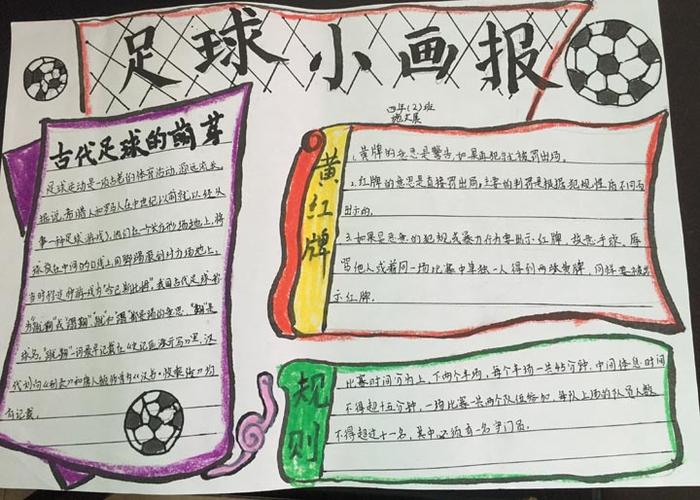 足球小画报
四年(2)班
古代足球的萌芽
足球运动是一项古老的体育活动,源远流长。
据说,希腊人和罗马人在中世纪以前就以经从
事一种足球游戏了,他们在一个长方形场地上,将
球放在中间的白线上,用脚踢滚到对方场地上,
当时称这种游戏为"哈巴斯托姆"。我国古代足球称
为"蹴鞠"或"蹋鞠","蹴"和"蹋"都是踢的意思,"鞠"是
球名。"蹴鞠"一词最早记载在《史记
有记载。
黄红牌
1.黄牌的意思是警告,如果再犯就被罚出场。
2.红牌的意思是直接罚出场,主要的判罚是根据犯规性质不同而
出示的。
3.如果是恶意的犯规或暴力行为要出示红牌,故意手球、辱
骂他人或者同一场比赛中单独一人得到两张黄牌,同样要被出
示红牌。
规则
比赛时间分为上、下两个半场,每个半场一共45分钟,中间休息时间
不得超十五分钟,一场比赛一共两个队伍参加,每队上场的队员人数
不得超过十一名,其中必须有一名守门员。